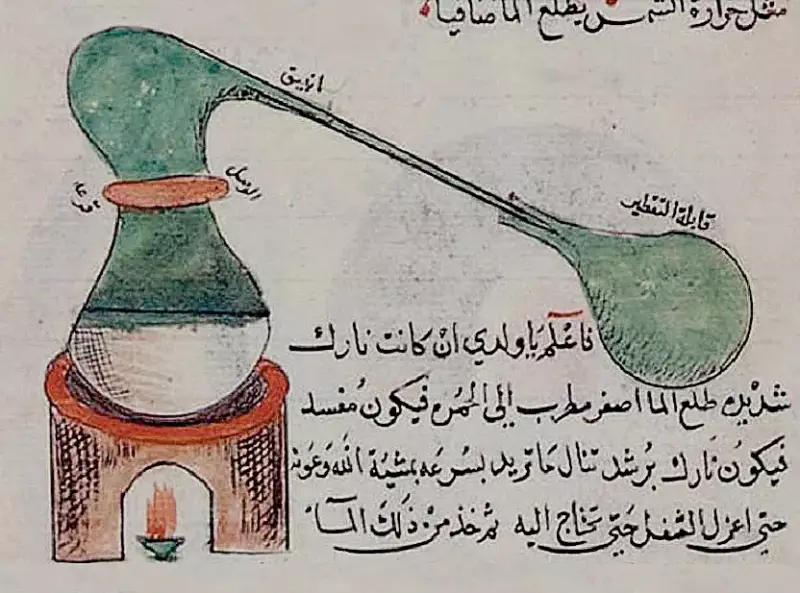 مثل حرارة الشمس يطلع الما صافيا
انبيق
الوصل
قرعة
قابلة التقطير
فاعلم يا ولدي ان كانت نارك
شديده طلع الما اصفر مطرب الى الحمره فيكون مفسد
فيكون نارك برشد تنال ما تريد بسرعه بمشية الله وعونه
حتى اعزل الثفل حتى تحتاج اليه ثم خذ من ذلك الما